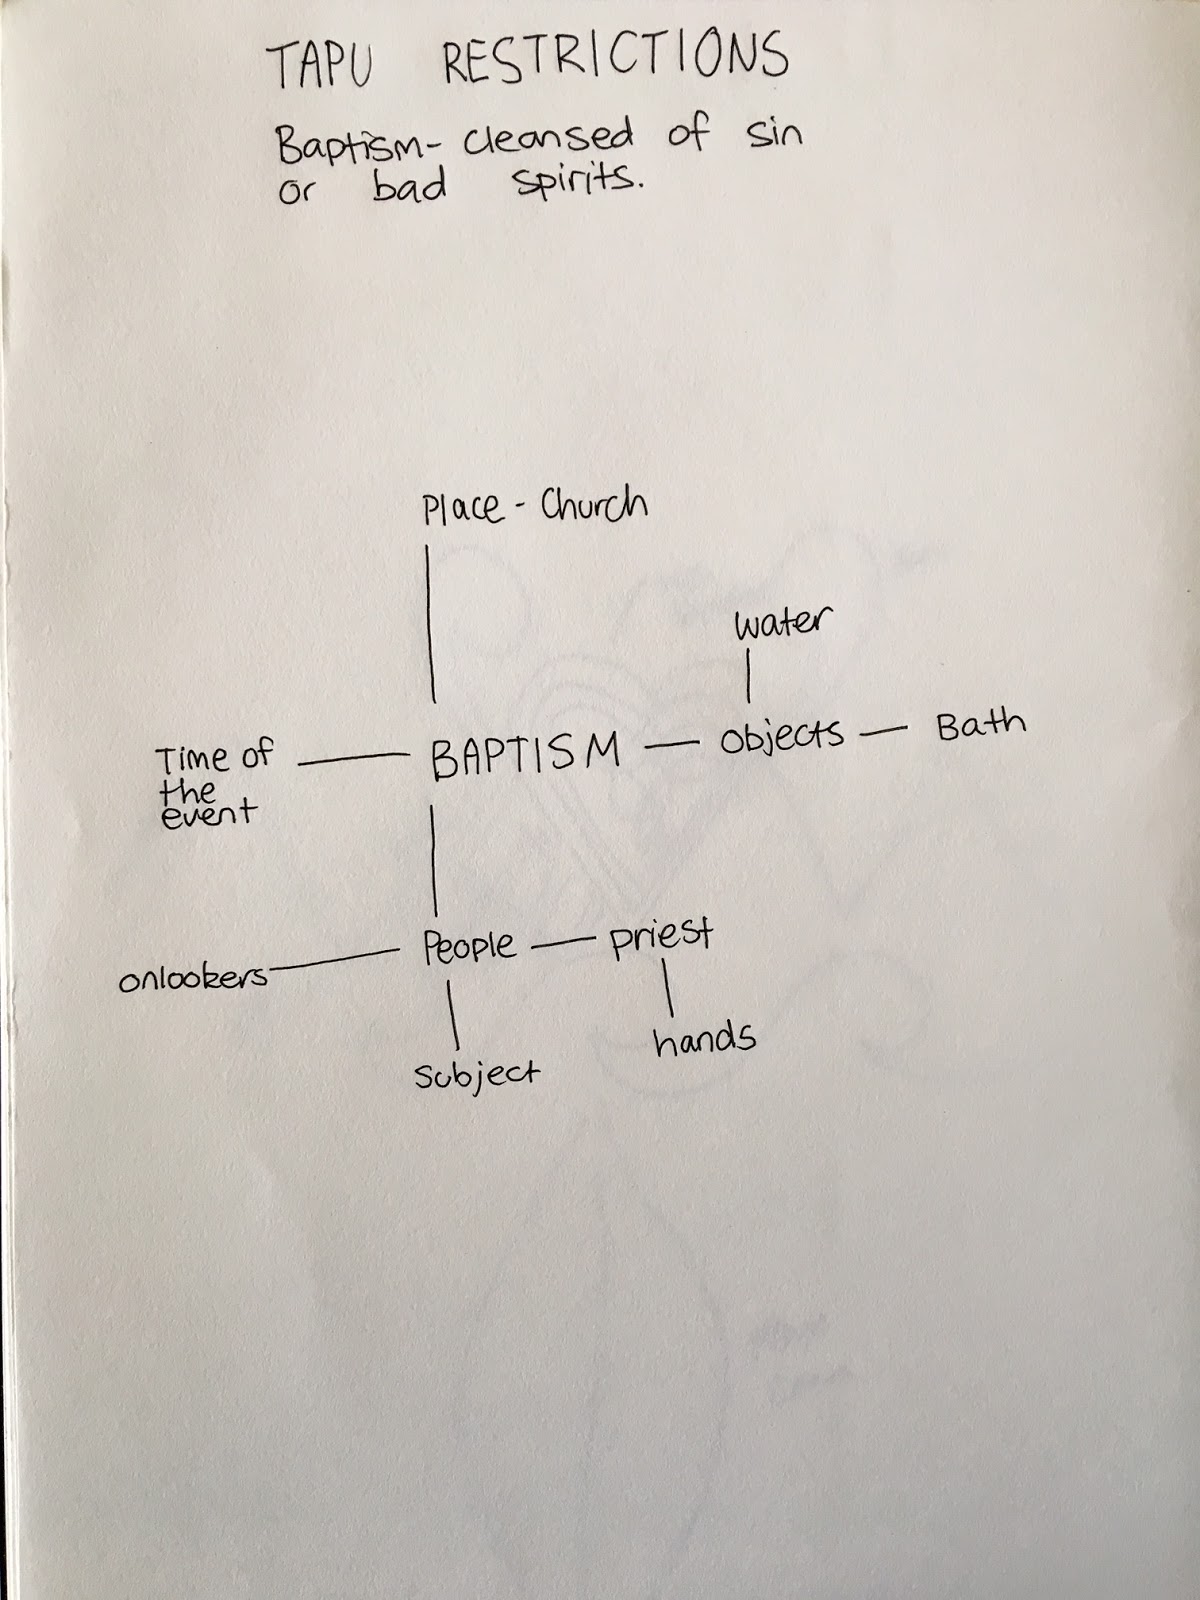 TAPU RESTRICTIONS
Baptism- cleansed of sin
or bad spirits.
Place - Church
water
Time of
the
event
BAPTISM
objects
Bath
onlookers
People
priest
hands
subject